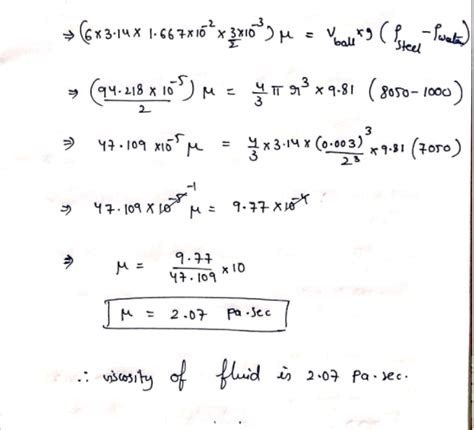 ⇒ (6×3.14× 1.667×10⁻² × 3/2 ×10⁻³) μ = V_ball × g (ρ_steel − ρ_water)
⇒ (94.218 × 10⁻⁵ / 2) μ = 4/3 π r³ × 9.81 (8050−1000)
⇒ 47.109 ×10⁻⁵ μ = 4/3 × 3.14 × (0.003)³/2³ × 9.81 (7050)
⇒ 47.109 × 10⁻⁵ ⁻¹ μ = 9.77 × 10⁻⁴
⇒ μ = 9.77/47.109 × 10
μ = 2.07 pa.sec
∴ viscosity of fluid is 2.07 pa.sec.